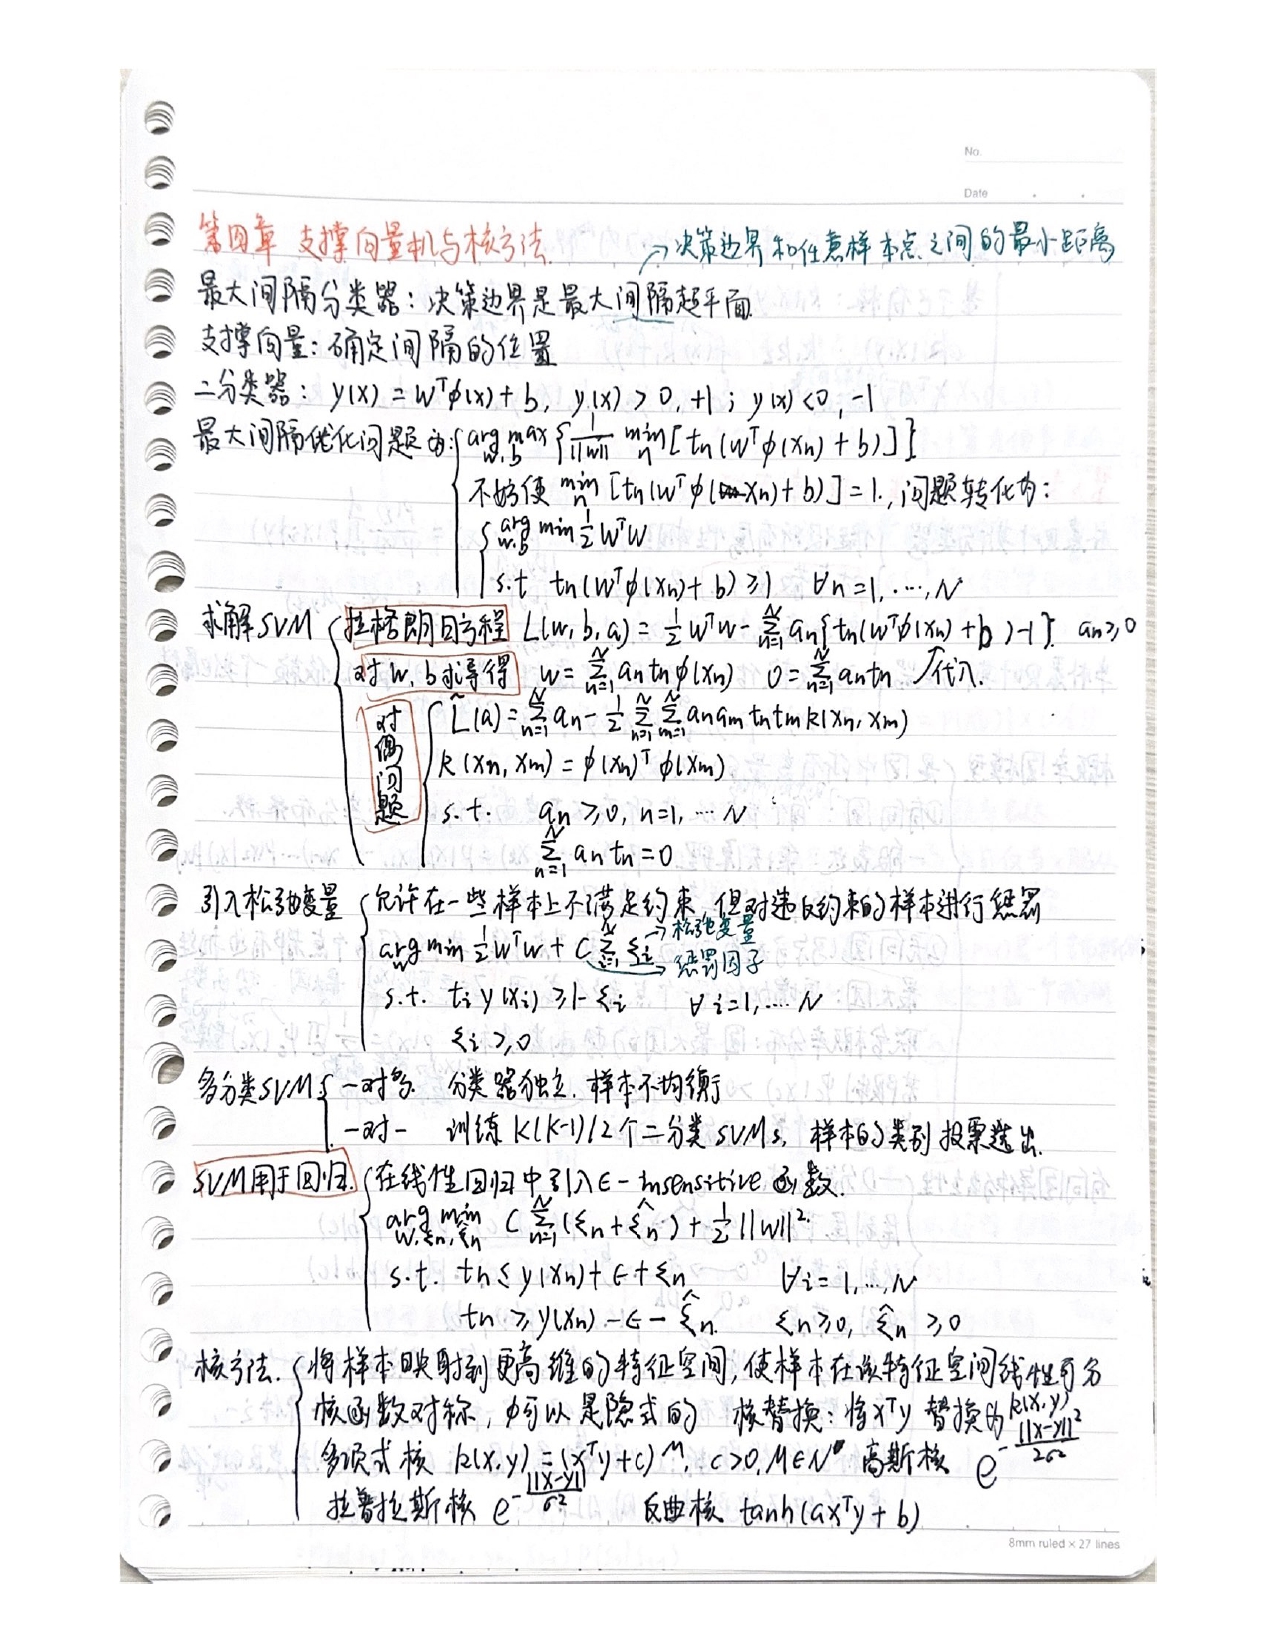 No.
Date
第四章 支撑向量机与核方法.
→决策边界和任意样本点之间的最小距离
最大间隔分类器：决策边界是最大间隔超平面
支撑向量：确定间隔的位置
二分类器：y(x) = wᵀφ(x) + b, y(x) > 0, +1 ; y(x) < 0, -1
最大间隔优化问题为: { arg max_{w,b} { 1/||w|| min_n [tn(wᵀφ(xn) + b)] }
不妨使 min_n [tn(wᵀφ(xn) + b)] = 1., 问题转化为:
{ arg min_{w,b} ½ wᵀw
s.t tn(wᵀφ(xn) + b) ≥ 1 ∀n = 1, ..., N
求解SVM { 拉格朗日方程 L(w, b, a) = ½ wᵀw - Σ_{n=1}^N an{tn(wᵀφ(xn) + b) - 1}. an ≥ 0
对w, b求导得 w = Σ_{n=1}^N an tn φ(xn) 0 = Σ_{n=1}^N an tn ↗代入.
对偶问题 { L̃(a) = Σ_{n=1}^N an - ½ Σ_{n=1}^N Σ_{m=1}^N an am tn tm k(xn, xm)
k(xn, xm) = φ(xn)ᵀ φ(xm)
s.t. an ≥ 0, n=1, ... N
Σ_{n=1}^N an tn = 0
引入松弛变量 { 允许在一些样本上不满足约束, 但对违反约束的样本进行惩罚
arg min_w ½ wᵀw + C Σ_{i=1}^N ξi →松弛变量
→惩罚因子
s.t. ti y(xi) ≥ 1 - ξi ∀i = 1, .... N
ξi ≥ 0
多分类SVM { 一对多. 分类器独立. 样本不均衡
一对一 训练 K(K-1)/2个二分类SVMs, 样本的类别投票选出.
SVM用于回归. { 在线性回归中引入ϵ-insensitive函数.
arg min_{w, ξn, ξn} C Σ_{n=1}^N (ξn + ξ̂n) + ½ ||w||².
s.t. tn ≤ y(xn) + ϵ + ξn ∀i = 1, ..., N
tn ≥ y(xn) - ϵ - ξ̂n. ξn ≥ 0, ξ̂n ≥ 0
核方法. { 将样本映射到更高维的特征空间, 使样本在该特征空间线性可分
核函数对称, φ可以是隐式的 核替换: 将xᵀy 替换为k(x, y)
多项式核 k(x, y) = (xᵀy + c)^M, c > 0, M ∈ N 高斯核 e^{-||x-y||²/2σ²}
拉普拉斯核 e^{-||x-y||/σ²} 反曲核 tanh(axᵀy + b)
8mm ruled × 27 lines